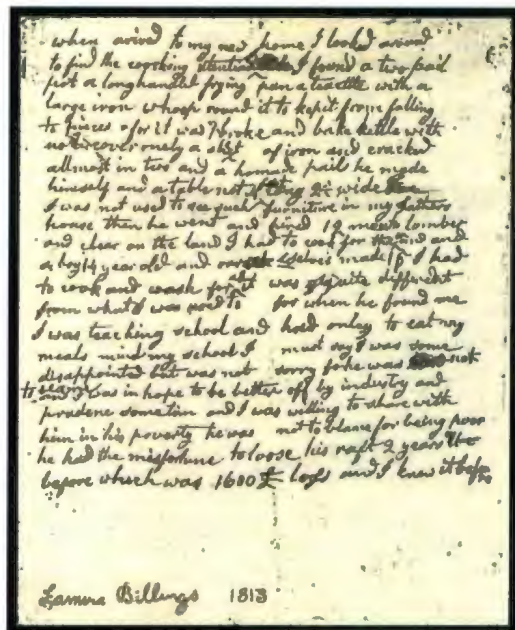 when arived to my new home I looked arived
to find the cooking I found a two pail
pot a longhandel frying pan a teacttle with a
large iron whoop round it to kepit from falling
to pieces for it was broke and bake kettle with
no cover onely a of iron and cracked
allmost in two and a homade pail he made
himself and a table not 2½ wide
I was not used to see such furniture in my fathers
house then he went and hired 12 men to lomber
and clear on the land I had to cook for and
a boy 14 year old and made I had
to cook and wash for it was quite different
from what I was used to for when he found me
I was teaching school and had onley to eat my
meals mind my school I must say I was some
disappointed but was not sorry for he was not
to and I was in hope to be better off by industry and
prudene sometim and I was willing to share with
him in his poverty he was not to blame for being poor
he had the misfortune to loose his raft 2 years
before which was 1600 £ loss and I knew it before
Lamira Billings 1813